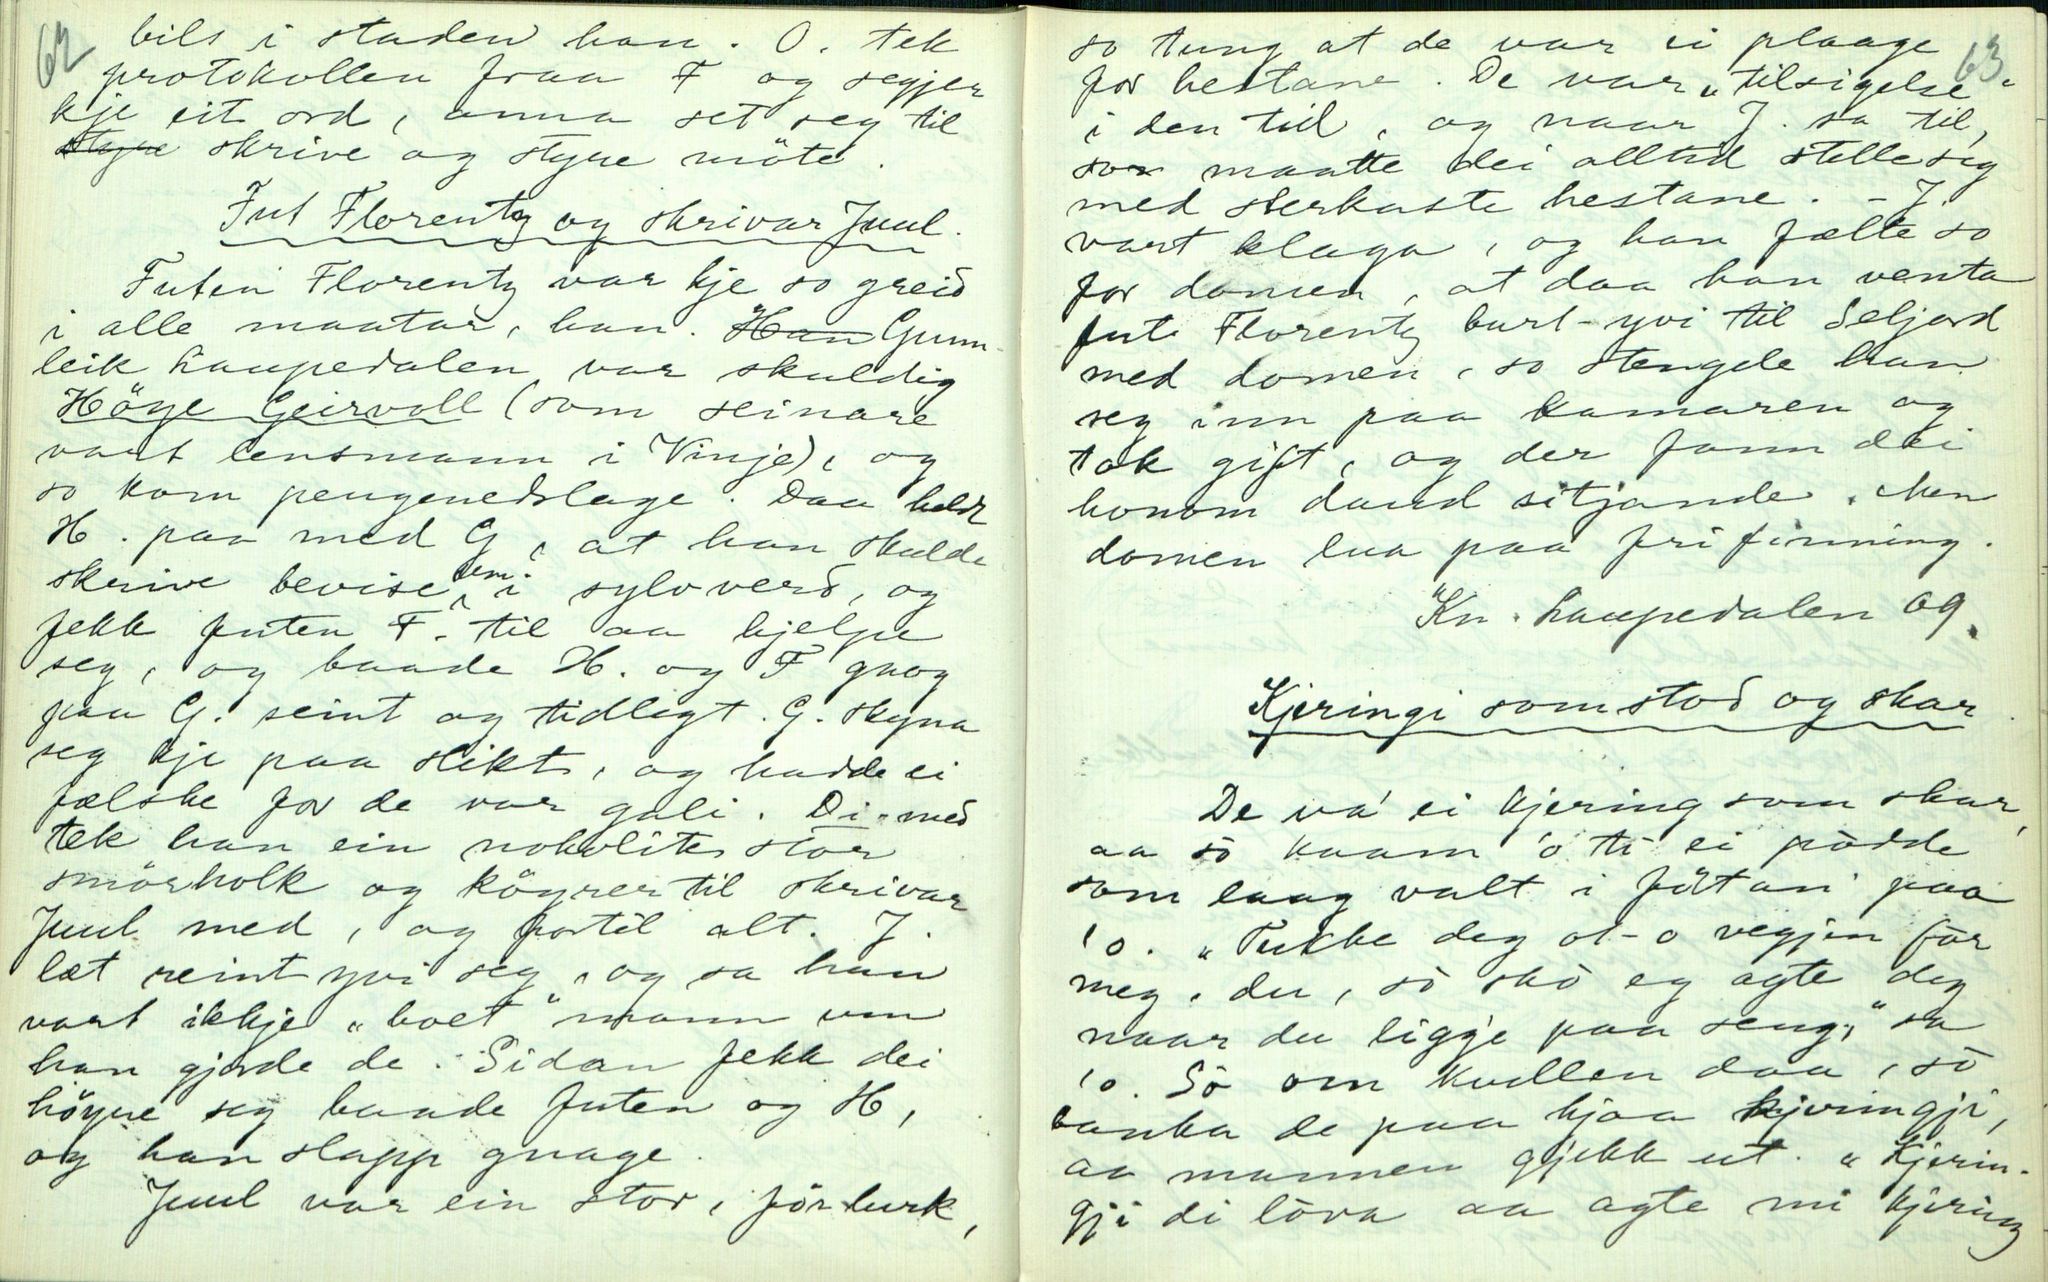 62
bils i staden han. O. tek
protokollen fraa F og segjer
kje eit ord, anna set seg til
styre skrive og styre möte.
Fut Florentz og skrivar Juul.
Futen Florentz var kje so greid
i alle maatar, han. Han Gunn-
leik Laupedalen var skuldig
Höge Geirvoll (som seinare
vart lensmann i Vinje), og
so kom pengenedslage. Daa heldt
H. paa med G, at han skulde
skrive bevise um i sylvverd, og
fekk futen F. til aa hjelpe
seg, og baade H. og F gnog
paa G. seint og tidlegt. G. skyna
seg kje paa slikt, og hadde ei
fælske for de var gali. Di-med
tek han ein nokolite stor
smörholk og köyrer til skrivar
Juul med, og fortel alt. J.
læt reint yvi seg, og sa han
vart ikkje "boet" mann um
han gjorde de. Sidan fekk dei
höyre seg baade futen og H,
og han slapp gnage.
Juul var ein stor,för burk,
63
so tung at de var ei plaage
for hestane. De var "tilsigelse"
i den tid, og naar J. sa til,
so maatte dei alltid stelle seg
med sterkaste hestane. - J.
vart klaga, og han fælte so
for domen, at daa han venta
fut Florentz burt-yvi til Seljord
med domen, so stengde han
seg inn paa kamaren og
tok gift, og der fann dei
honom daud sitjande. Men
domen lua paa frifinning.
Kn. Laupedalen og.
Kjeringi som stod og skar.
De va' ei kjering som skar,
aa sò kaam 'o ti' ei pòdde
som laag valt i fòtan' paa
'o. "Tukke deg ot-o vegjen før
meg, du, sò skò eg agte deg
naar du ligg'e paa seng," sa
'o. Sò om kvellen daa, sò
banka de paa hjaa kjeringji,
aa mannen gjekk ut. "Kjerin-
gji di lòva aa agte mi kjering